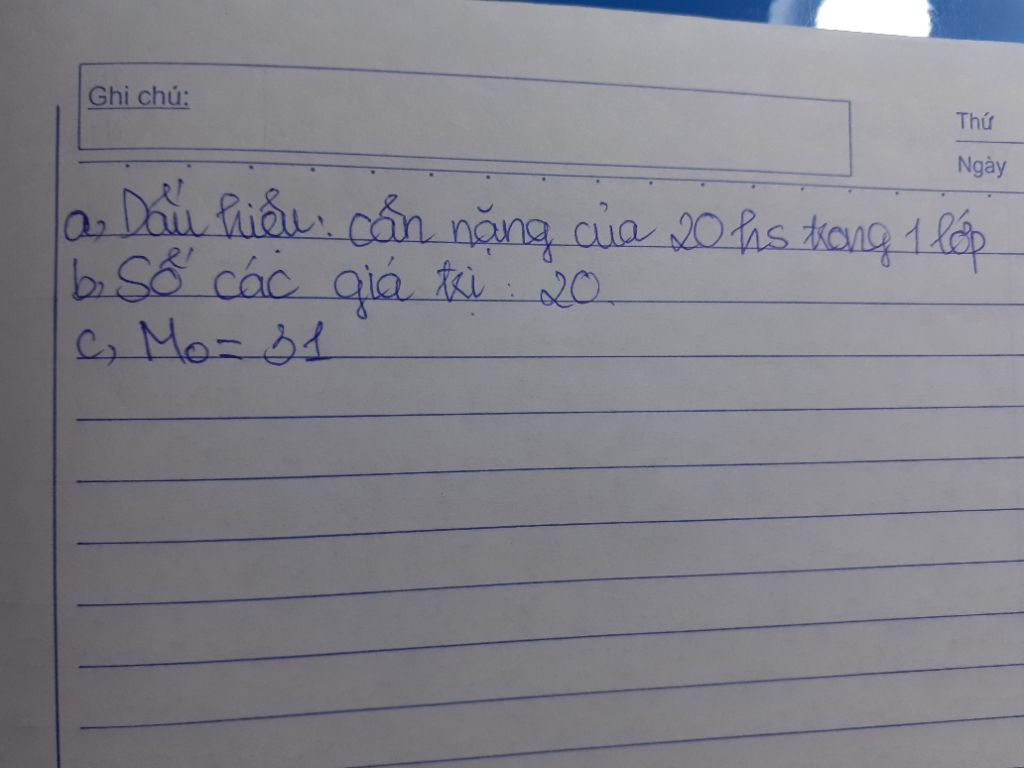 Ghi chú:
Thứ
Ngày
a, Dấu hiệu: cân nặng của 20 hs trong 1 lớp
b, Số các giá trị: 20.
c, Mo = 31